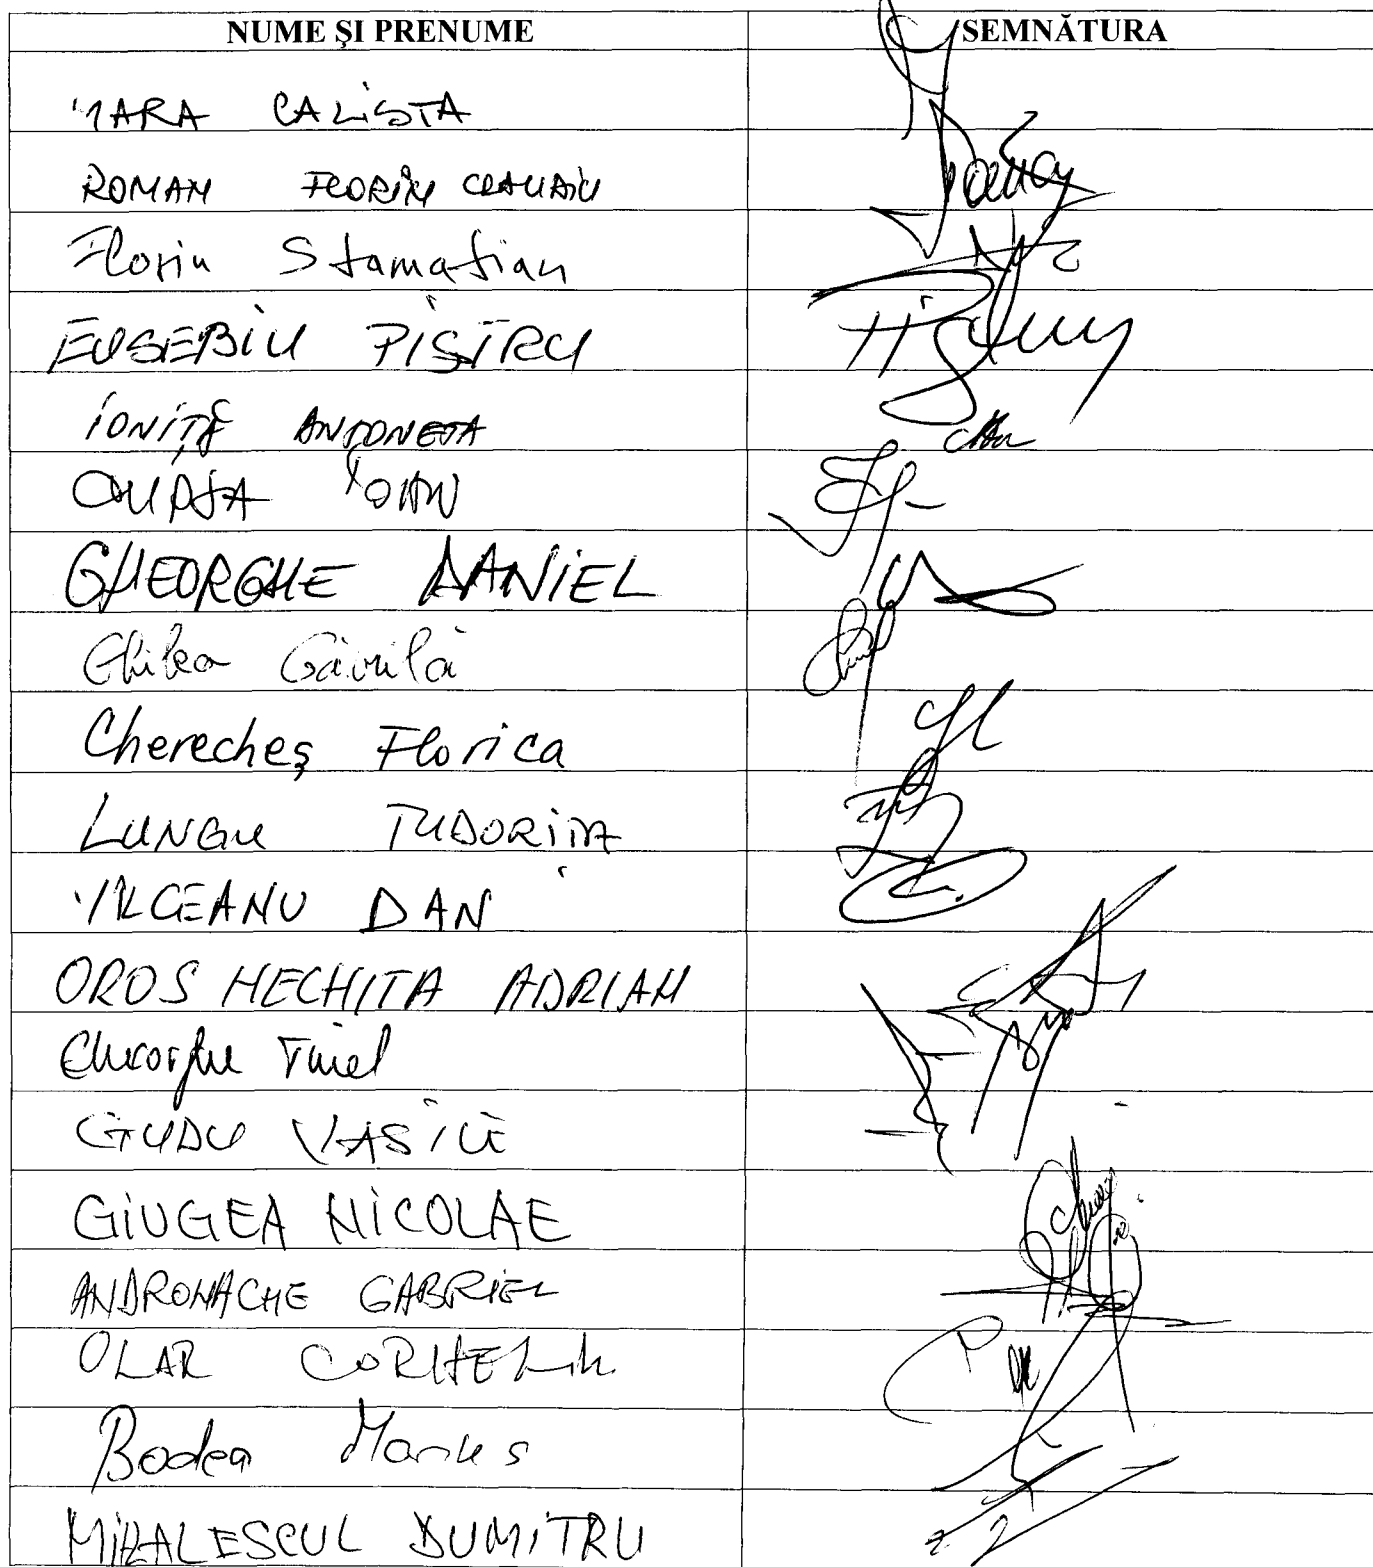 NUME ŞI PRENUME SEMNĂTURA
MARA CALISTA
ROMAN FLORIN CLAUDIU
Florin Stamatian
EUSEBIU PISTRU
IONIȚĂ ANTONETA
IOAN
GHEORGHE DANIEL
Ghilea Găvrilă
Cherecheş Florica
LUNGU TUDORIȚA
VÎLCEANU DAN
OROS NECHITA ADRIAN
Gheorghe Tinel
GUDU VASILE
GIUGEA NICOLAE
ANDRONACHE GABRIEL
OLAR CORNELIU
Bodea Marius
MIHALESCUL DUMITRU